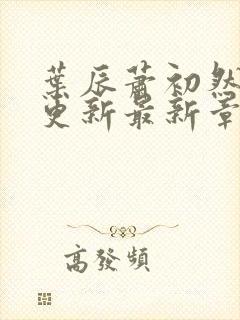 葉辰蕭初然
更新最新章
高發頻